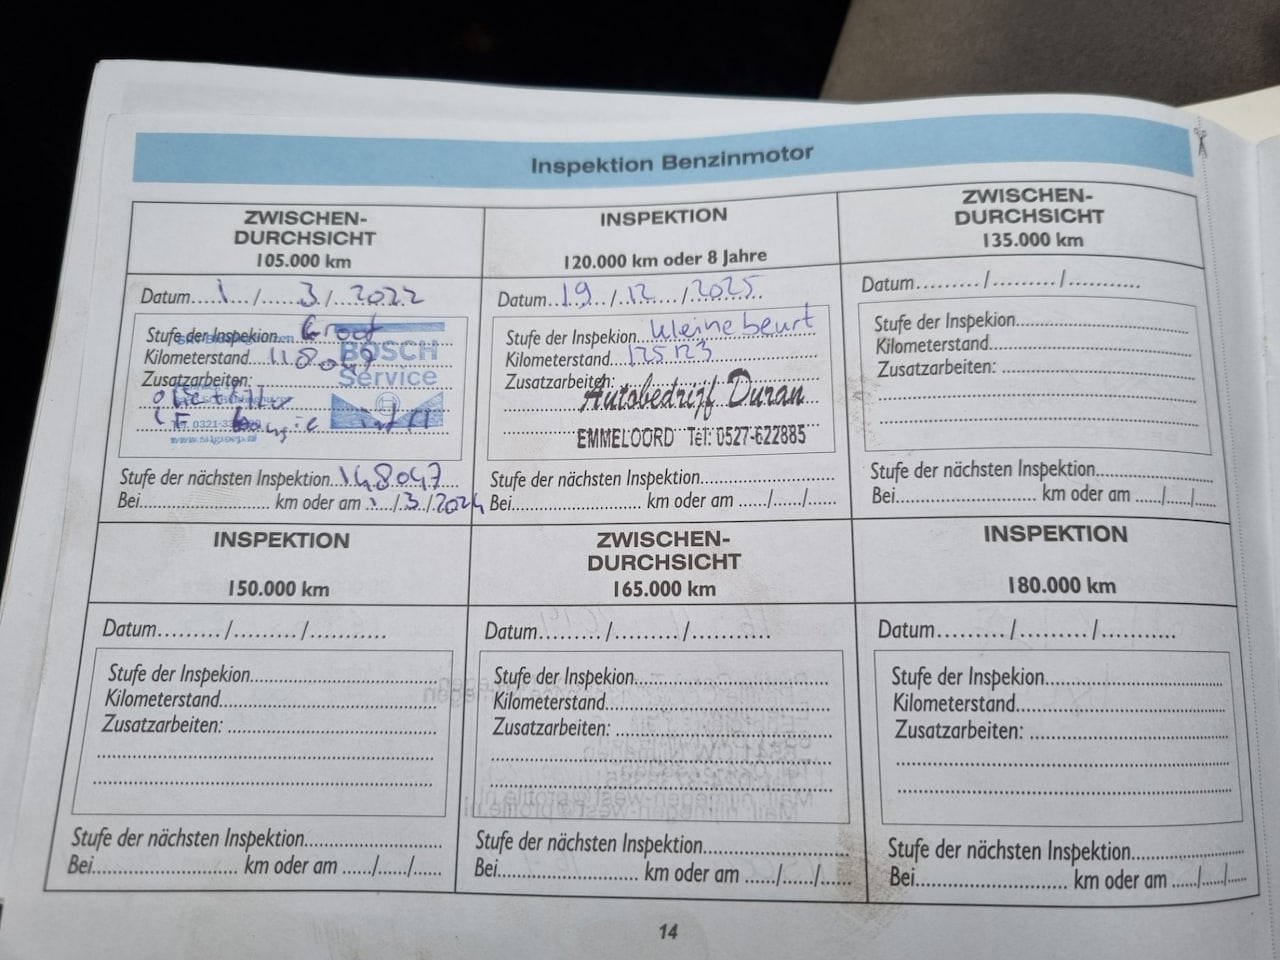 Inspektion Benzinmotor
ZWISCHEN-
DURCHSICHT
105.000 km
Datum.....1..../......3../...2022
Stufe der Inspekion Groot
Kilometerstand 118047
Zusatzarbeiten:
BOSCH
Service
oliefilter
Stufe der nächsten Inspektion 148047
Bei............................ km oder am 1./.3./2024
INSPEKTION
120.000 km oder 8 Jahre
Datum..19../.12...../.2025
Stufe der Inspekion kleine beurt
Kilometerstand 125123
Zusatzarbeiten:
Autobedrijf Duran
EMMELOORD Tel: 0527-622885
Stufe der nächsten Inspektion
Bei............................ km oder am ....../....../......
ZWISCHEN-
DURCHSICHT
135.000 km
Datum........./........./............
Stufe der Inspekion
Kilometerstand
Zusatzarbeiten:
Stufe der nächsten Inspektion
Bei............................ km oder am ....../....../......
INSPEKTION
150.000 km
Datum........./........./............
Stufe der Inspekion
Kilometerstand
Zusatzarbeiten:
Stufe der nächsten Inspektion
Bei............................ km oder am ....../....../......
ZWISCHEN-
DURCHSICHT
165.000 km
Datum........./........./............
Stufe der Inspekion
Kilometerstand
Zusatzarbeiten:
Stufe der nächsten Inspektion
Bei............................ km oder am ....../....../......
INSPEKTION
180.000 km
Datum........./........./............
Stufe der Inspekion
Kilometerstand
Zusatzarbeiten:
Stufe der nächsten Inspektion
Bei............................ km oder am ....../....../......
14